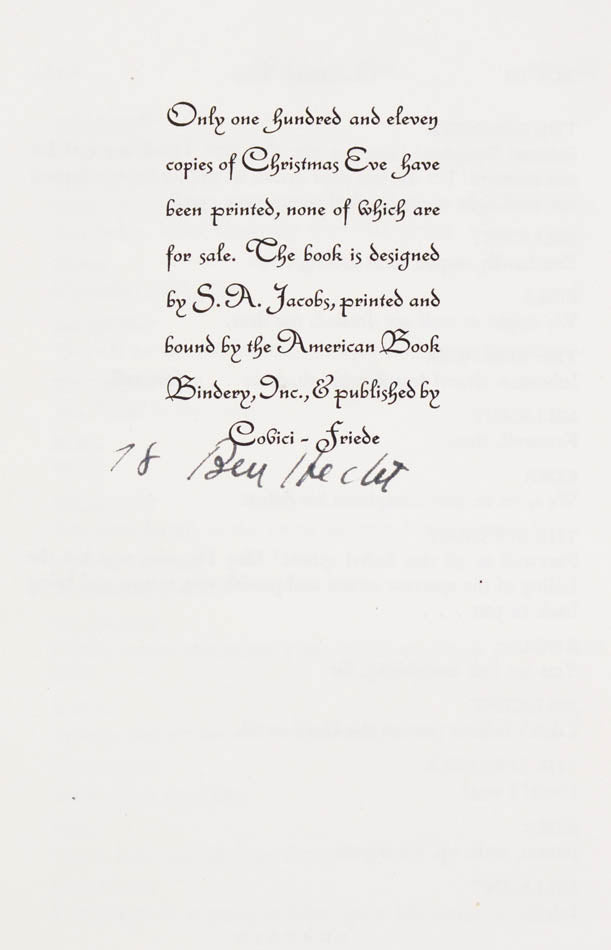 Only one hundred and eleven
copies of Christmas Eve have
been printed, none of which are
for sale. The book is designed
by S. A. Jacobs, printed and
bound by the American Book
Bindery, Inc., & published by
Covici - Friede
78 Ben Hecht